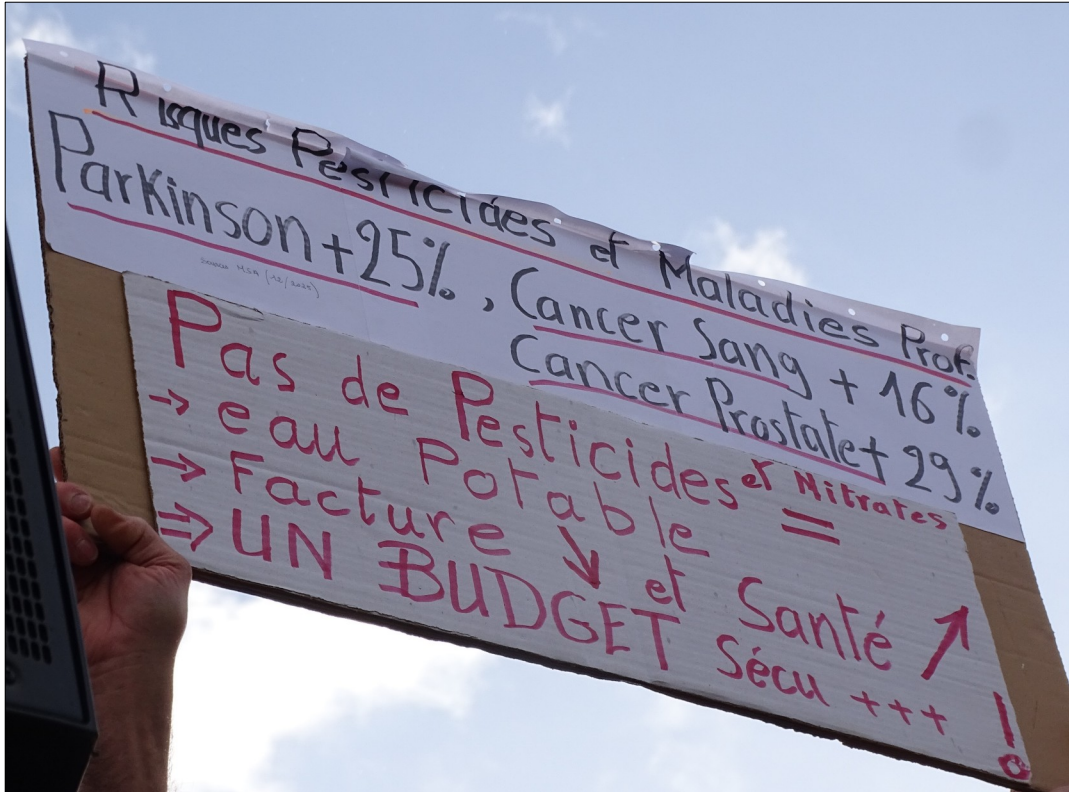 Risques Pesticides et Maladies Prof.
Parkinson +25%, Cancer Sang + 16%
Cancer Prostate + 29%
MSA (12/2025)
Pas de Pesticides et Nitrates =
→ eau Potable
→ Facture ↘ et Santé ↗
⇒ UN BUDGET Sécu +++ !